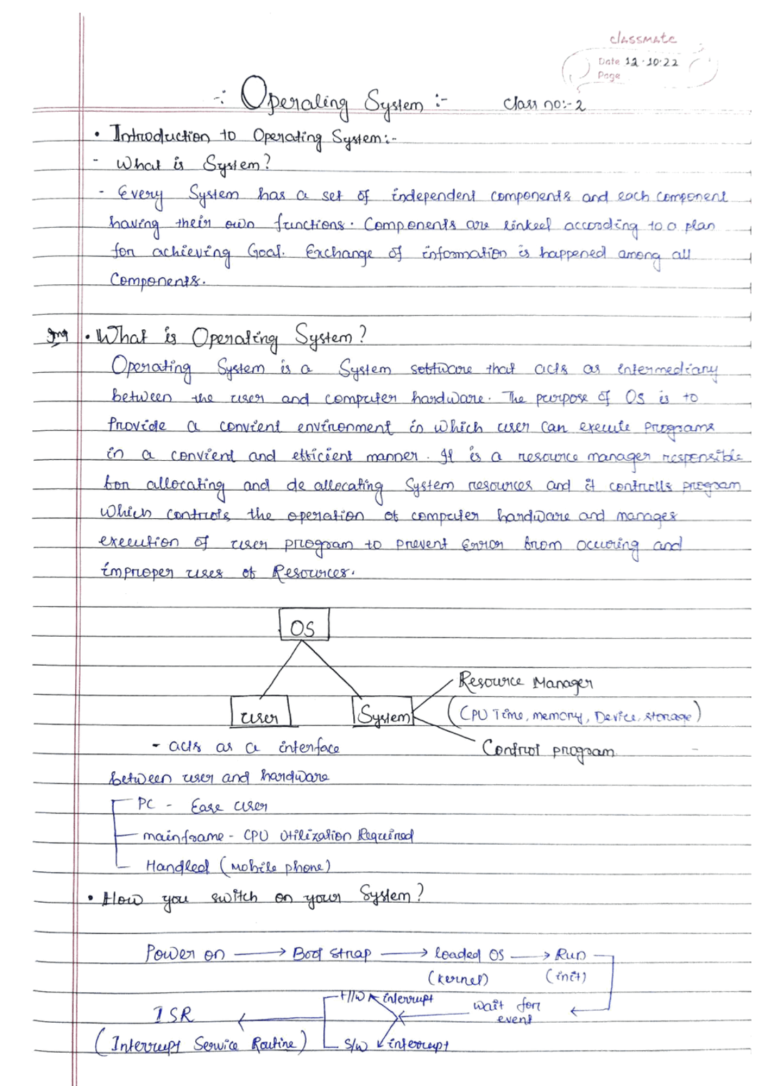 classmate
Date 12-10-22
Page
-: Operating System :- Class no:-2
• Introduction to Operating System:-
- What is System?
- Every System has a set of independent components and each component
having their own functions. Components are linked according to a plan
for achieving Goal. Exchange of information is happened among all
Components.
Imp • What is Operating System?
Operating System is a System software that acts as intermediary
between the user and computer hardware. The purpose of OS is to
Provide a convient environment in which user can execute programs
in a convient and efficient manner. It is a resource manager responsible
for allocating and de allocating System resources and it controlls program
which controls the operation of computer hardware and manages
execution of user program to prevent Error from occuring and
improper uses of Resources.
OS
User
System
Resource Manager
(CPU Time, memory, Device, storage)
Control program
- acts as a interface
between user and hardware
PC - Ease user
mainframe - CPU Utilization Required
Handled (Mobile phone)
• How you switch on your System?
Power on → Boot strap → loaded OS → Run
(kernel) (init)
H/W interrupt
wait for
event
ISR
(Interrupt Service Routine)
S/W interrupt